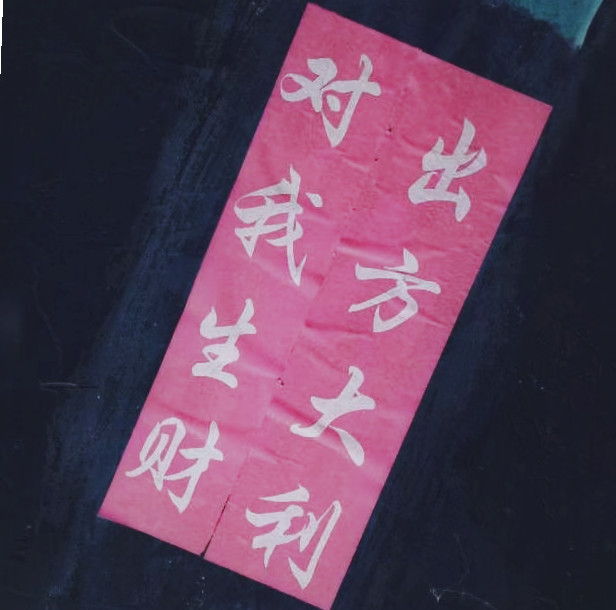 出方大利
对我生财